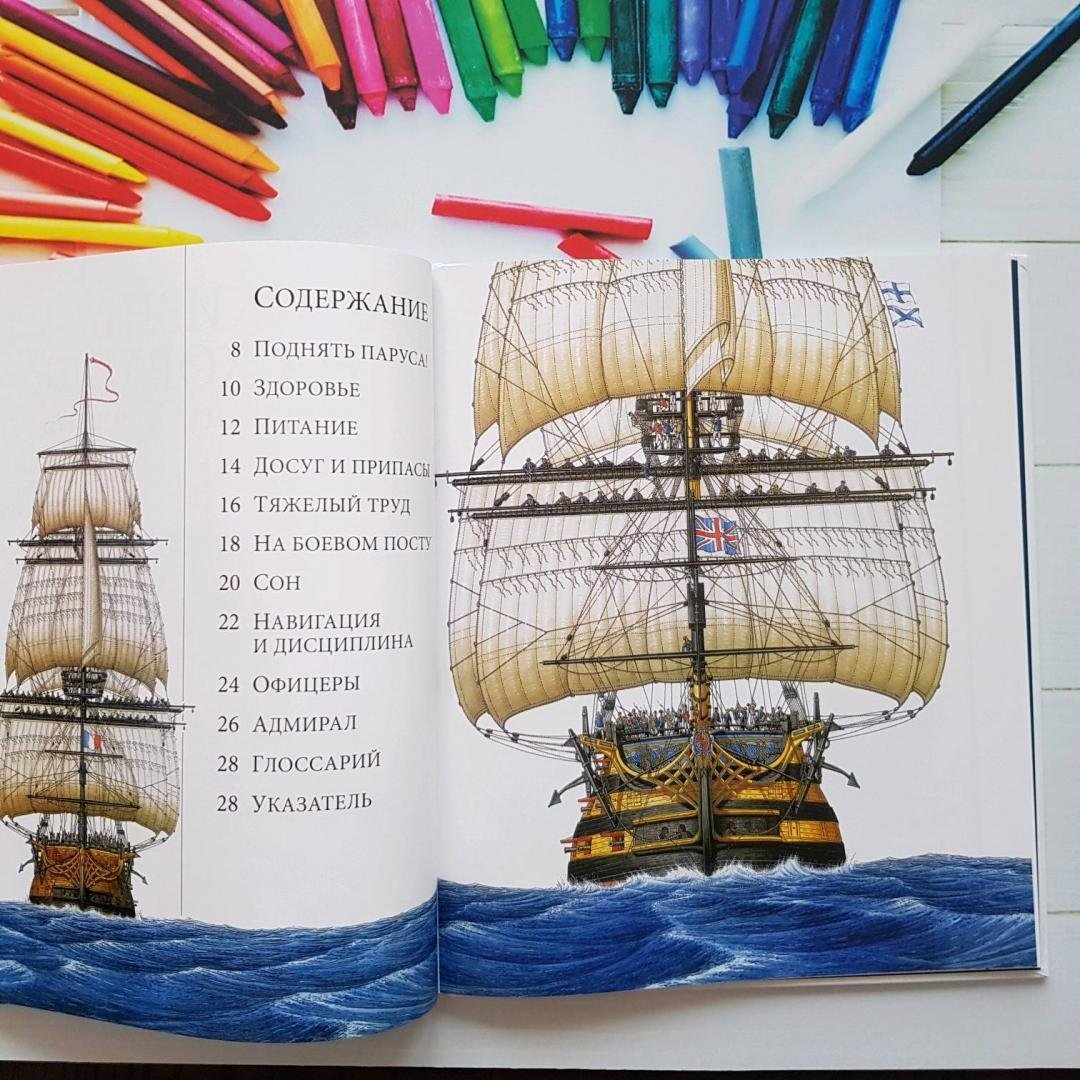 СОДЕРЖАНИЕ
8 ПОДНЯТЬ ПАРУСА!
10 ЗДОРОВЬЕ
12 ПИТАНИЕ
14 ДОСУГ И ПРИПАСЫ
16 ТЯЖЕЛЫЙ ТРУД
18 НА БОЕВОМ ПОСТУ
20 СОН
22 НАВИГАЦИЯ
И ДИСЦИПЛИНА
24 ОФИЦЕРЫ
26 АДМИРАЛ
28 ГЛОССАРИЙ
28 УКАЗАТЕЛЬ